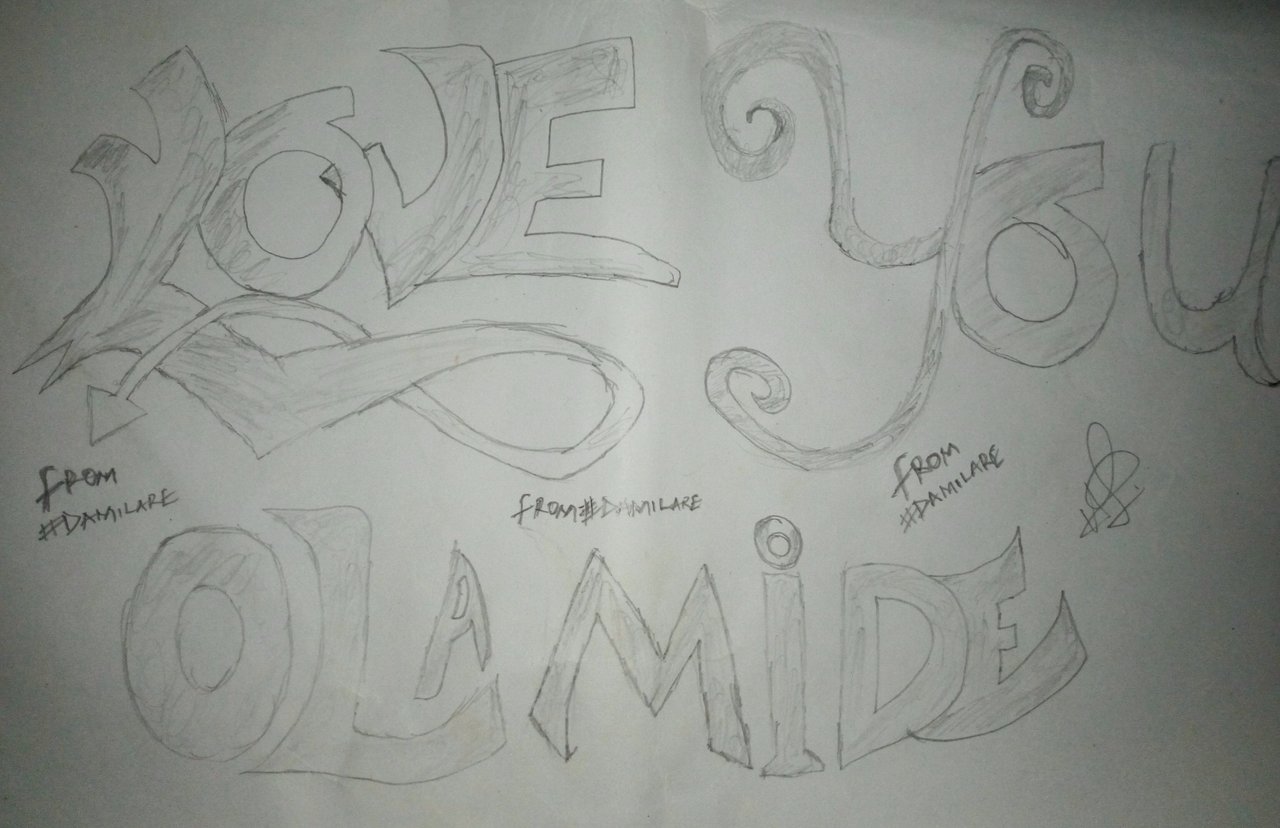 LOVE YOU
FROM
#DAMILARE
FROM#DAMILARE
FROM
#DAMILARE
OLAMiDE